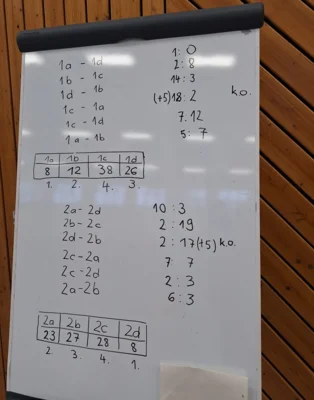 1a - 1d 1 : 0
1b - 1c 2 : 8
1d - 1b 14 : 3
1c - 1a (+5)18 : 2 k.o.
1c - 1d 7 : 12
1a - 1b 5 : 7
1a 1b 1c 1d
8 12 38 26
1. 2. 4. 3.
2a - 2d 10 : 3
2b - 2c 2 : 19
2d - 2b 2 : 17(+5) k.o.
2c - 2a 7 : 7
2c - 2d 2 : 3
2a - 2b 6 : 3
2a 2b 2c 2d
23 27 28 8
2. 3. 4. 1.